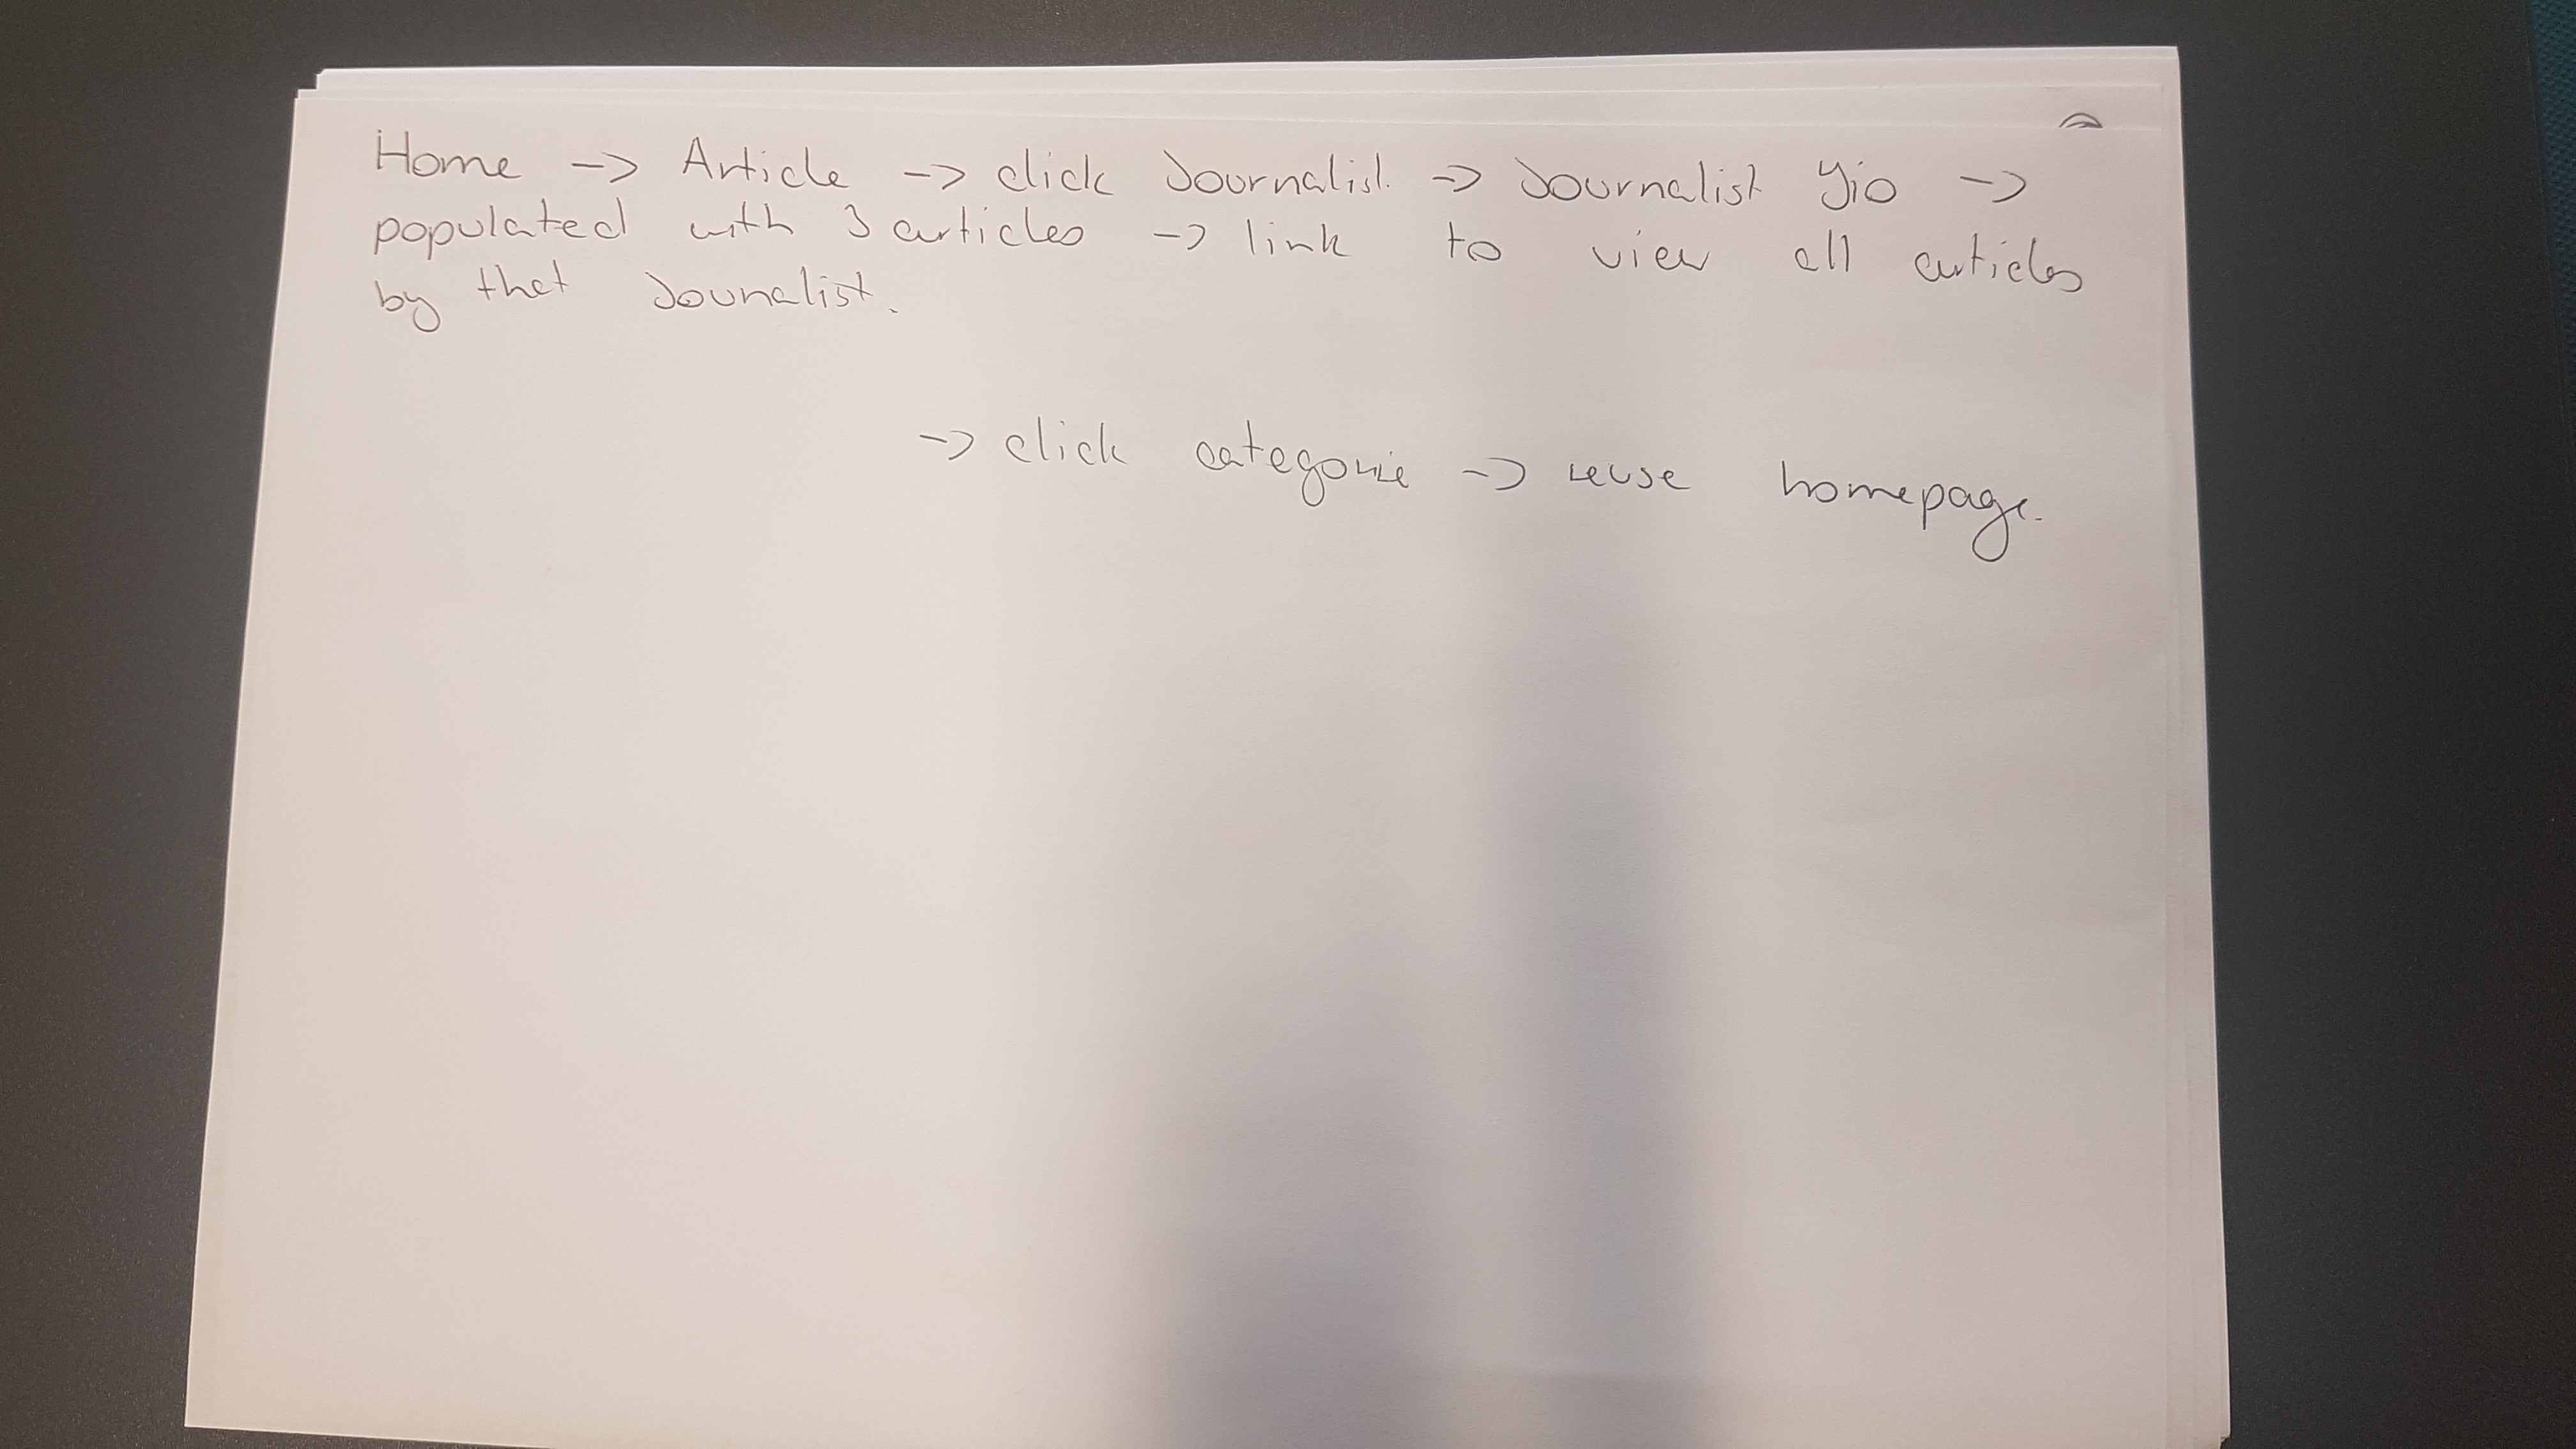 Home -> Article -> click Journalist. -> Journalist ->
populated with 3 articles -> link to view all articles
by that Jounalist.
-> click categorie -> reuse homepage.